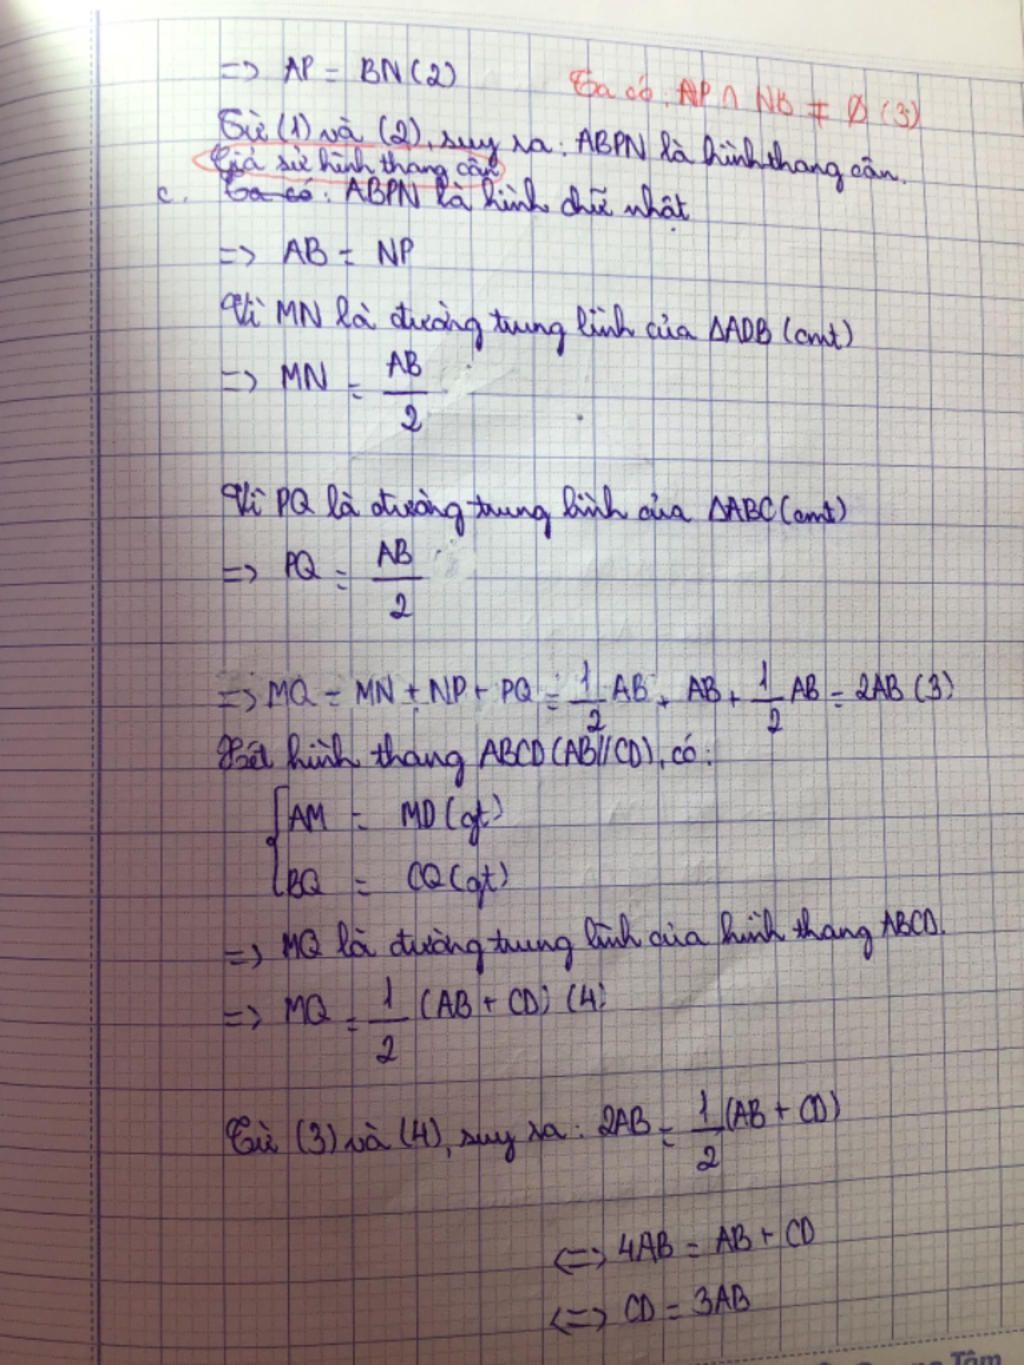 => AP = BN (2)
Ta có: AP ∩ NB ≠ Ø (3)
Từ (1) và (2), suy ra: ABPN là hình thang cân.
Giả sử hình thang cân
c. Ta có: ABPN là hình chữ nhật
=> AB = NP
Vì MN là đường trung bình của ΔADB (cmt)
=> MN = AB/2
Vì PQ là đường trung bình của ΔABC (cmt)
=> PQ = AB/2
=> MQ = MN + NP + PQ = 1/2 AB + AB + 1/2 AB = 2AB (3)
Xét hình thang ABCD (AB//CD), có:
{AM = MD (gt)
BQ = CQ (gt)
=> MQ là đường trung bình của hình thang ABCD.
=> MQ = 1/2 (AB + CD) (4)
Từ (3) và (4), suy ra: 2AB = 1/2 (AB + CD)
<=> 4AB = AB + CD
<=> CD = 3AB
Tâm